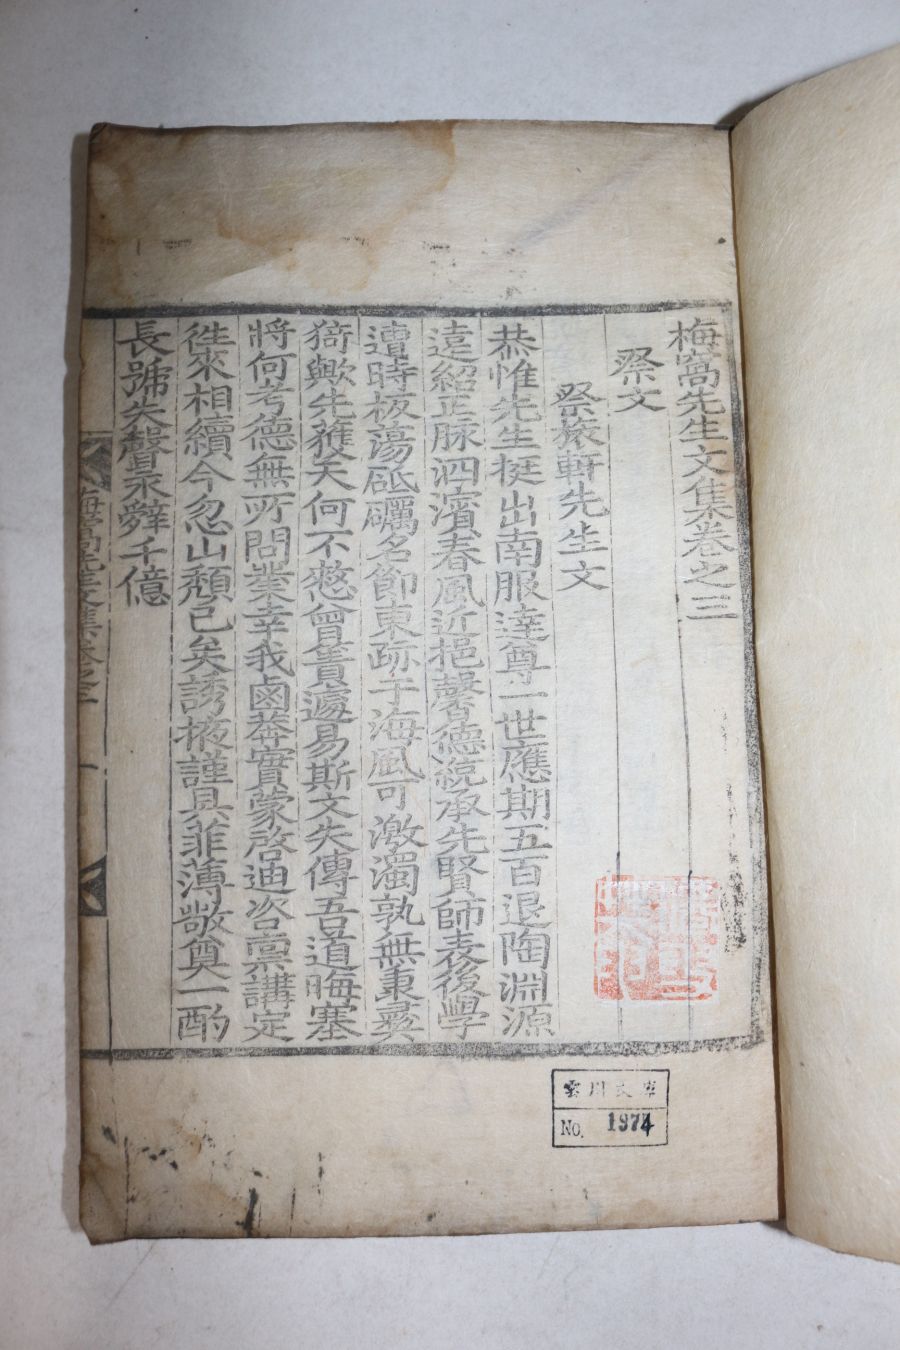 梅窩先生文集卷之三
祭文
祭旅軒先生文
恭惟先生挺出南服達尊一世應期五百退陶淵源
遠紹正脉泗濱春風近挹馨德統承先賢師表後學
遭時板蕩砥礪名節東跡于海風可激濁孰無秉彛
猗歟先䕶天何不憗曾簀遽易斯文失傳吾道晦塞
將何考德無所問業幸我鹵莽實蒙啓迪咨稟講定
徃來相續今忽山頹已矣誘掖謹具菲薄敬奠一酌
長號失聲永辭千億
梅窩先生文集卷之三
一
雲川文庫
No. 1974